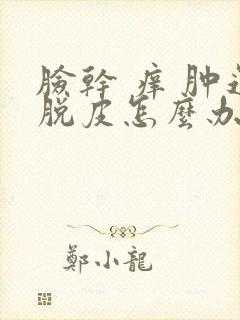 臉幹 痒 肿还
脱皮怎麼办
鄭小龍